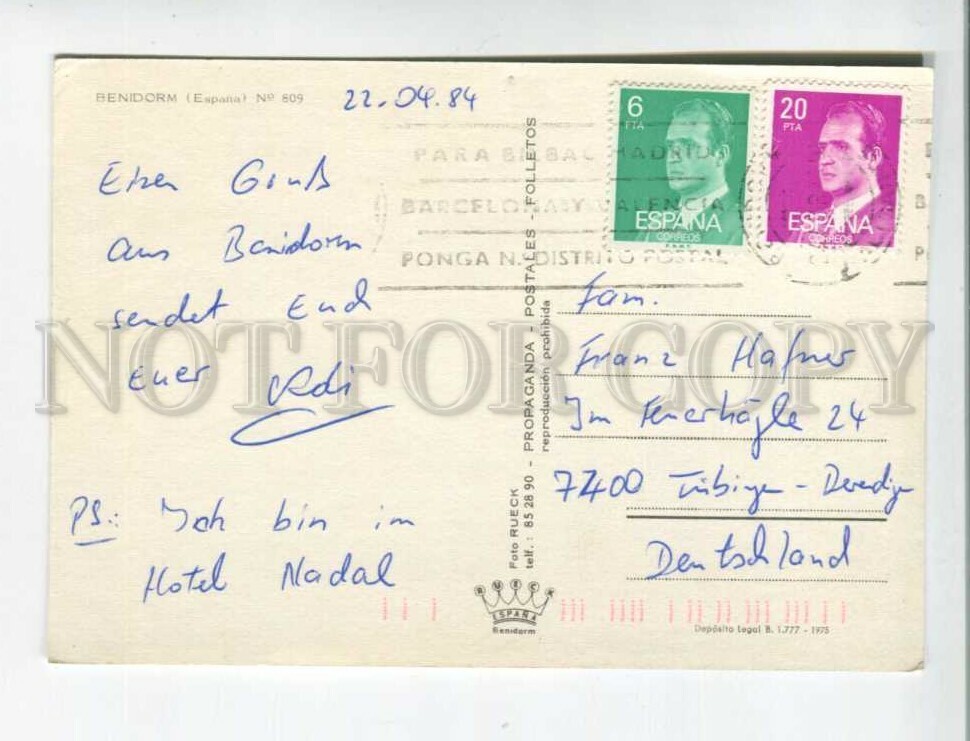 BENIDORM (España) Nº 809
22.04.84
Einen Gruß
aus Benidorm
sendet Euch
Euer
PS.: Ich bin im
Hotel Nadal
Foto RUECK
telf.: 85 28 90 - PROPAGANDA - POSTALES - FOLLETOS
reproducción prohibida
RUECK
ESPAÑA
Benidorm
6
PTA
ESPAÑA
CORREOS
20
PTA
ESPAÑA
CORREOS
PARA BILBAO MADRID
BARCELONA Y VALENCIA
PONGA N.º DISTRITO POSTAL
Fam.
Franz Hafner
Im Feuerhägle 24
7400 Tübingen - Derendingen
Deutschland
Depósito Legal B. 1.777 - 1975
NOT FOR COPY